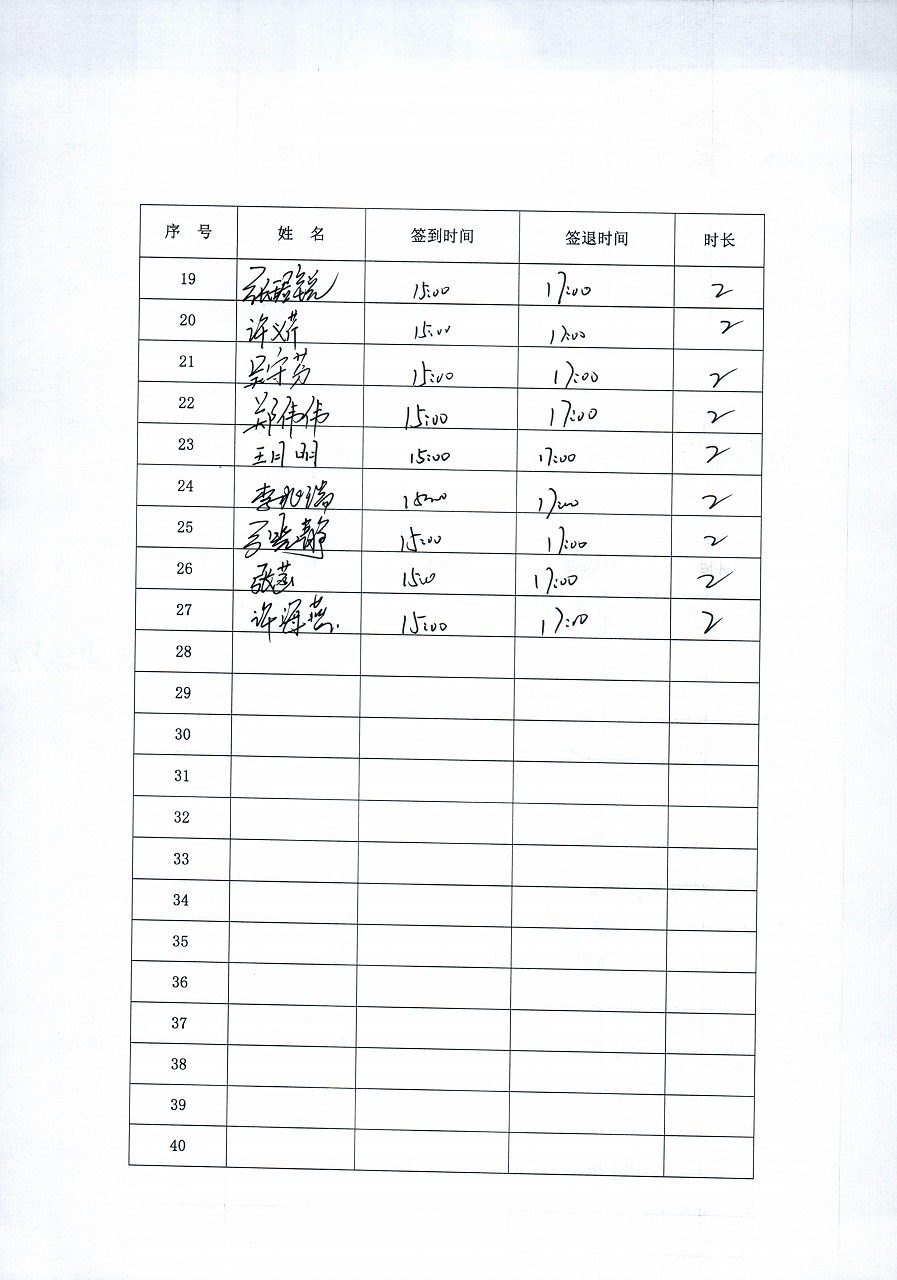 序 号 姓 名 签到时间 签退时间 时长
19 15:00 17:00 2
20 许义芹 15:00 17:00 2
21 吴守芳 15:00 17:00 2
22 郑伟伟 15:00 17:00 2
23 王月明 15:00 17:00 2
24 李 15:00 17:00 2
25 静 15:00 17:00 2
26 张 15:00 17:00 2
27 许海燕 15:00 17:00 2
28
29
30
31
32
33
34
35
36
37
38
39
40